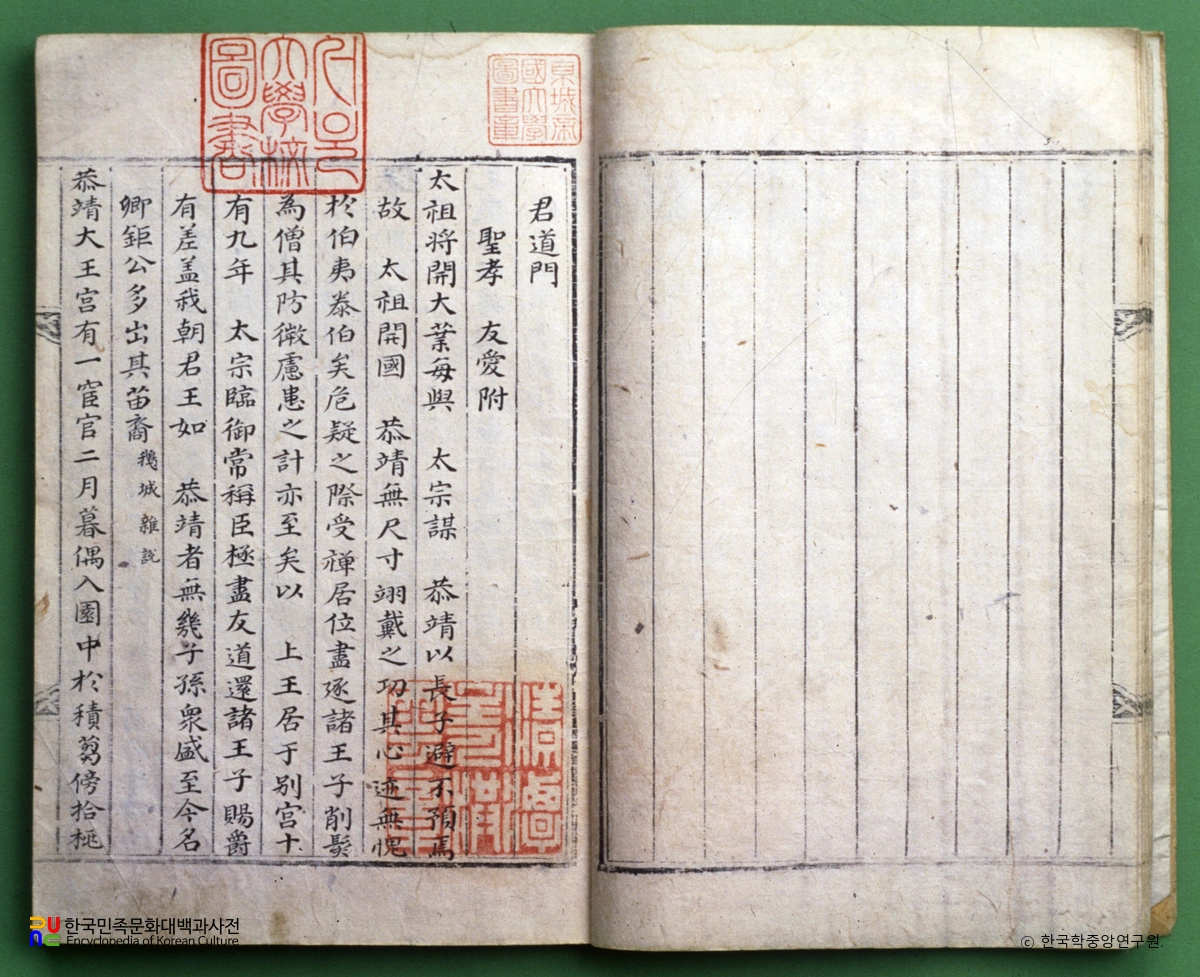 君道門
聖孝 友愛附
太祖将開大業每與 太宗謀 恭靖以長子避不預焉
故 太祖開國 恭靖無尺寸翊戴之功其心迹無愧
於伯夷泰伯矣危疑之際受禅居位盡逐諸王子削髮
為僧其防微慮患之計亦至矣以 上王居于别宫十
有九年 太宗臨御常稱臣極盡友道還諸王子賜爵
有差盖我朝君王如 恭靖者無幾子孫衆盛至今名
卿鉅公多出其苗裔 鵝城雜說
恭靖大王宫有一宦官二月暮偶入園中於積芻傍拾桃
京城帝國大學圖書章
서울大學校圖書
한국민족문화대백과사전
Encyclopedia of Korean Culture
© 한국학중앙연구원.